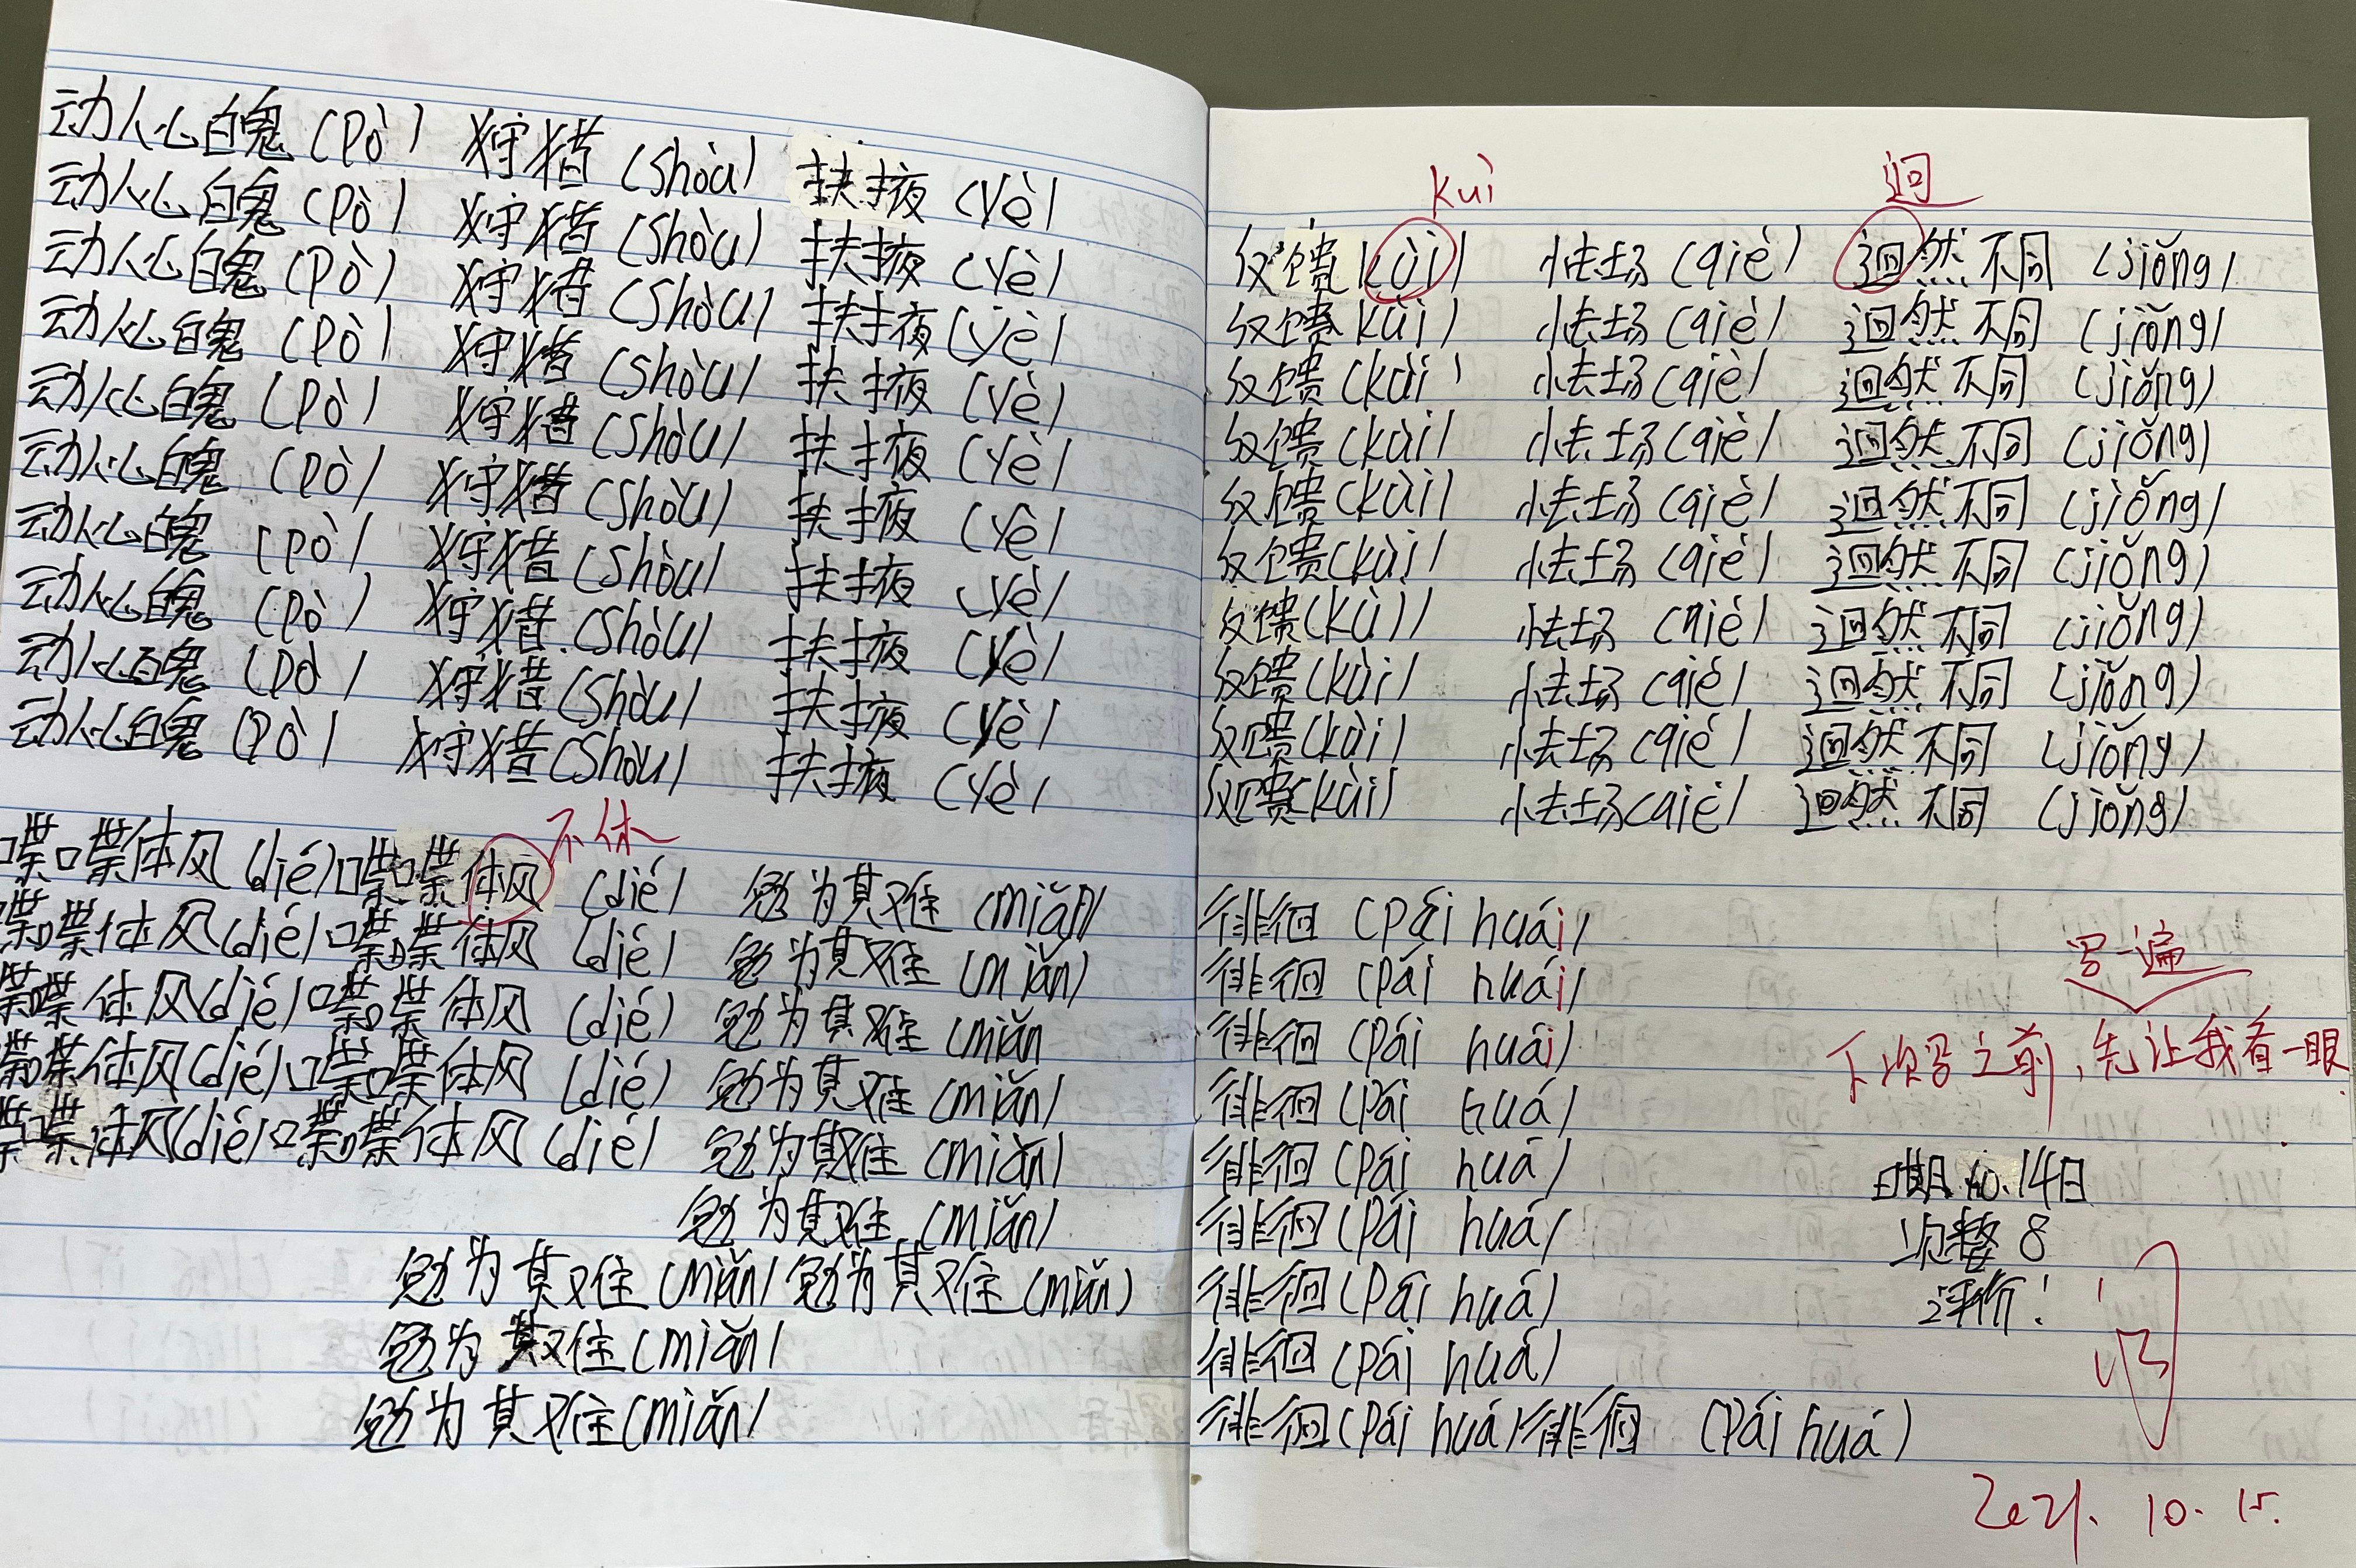 动人心魄 (pò) 狩猎 (shòu) 扶掖 (yè)
动人心魄 (pò) 狩猎 (shòu) 扶掖 (yè)
动人心魄 (pò) 狩猎 (shòu) 扶掖 (yè)
动人心魄 (pò) 狩猎 (shòu) 扶掖 (yè)
动人心魄 (pò) 狩猎 (shòu) 扶掖 (yè)
动人心魄 (pò) 狩猎 (shòu) 扶掖 (yè)
动人心魄 (pò) 狩猎 (shòu) 扶掖 (yè)
动人心魄 (pò) 狩猎 (shòu) 扶掖 (yè)
动人心魄 (pò) 狩猎 (shòu) 扶掖 (yè)
动人心魄 (pò) 狩猎 (shòu) 扶掖 (yè)
不休
喋喋体风 (dié) 喋喋体风 (dié) 勉为其难 (miǎn)
喋喋体风 (dié) 喋喋体风 (dié) 勉为其难 (miǎn)
喋喋体风 (dié) 喋喋体风 (dié) 勉为其难 (miǎn
喋喋体风 (dié) 喋喋体风 (dié) 勉为其难 (miǎn)
喋喋体风 (dié) 喋喋体风 (dié) 勉为其难 (miǎn)
勉为其难 (miǎn)
勉为其难 (miǎn) 勉为其难 (miǎn)
勉为其难 (miǎn)
勉为其难 (miǎn)
kuì 迥
反馈 (kùi) 怯场 (qiè) 迥然不同 (jiǒng)
反馈 kùi) 怯场 (qiè) 迥然不同 (jiǒng)
反馈 (kùi) 怯场 (qiè) 迥然不同 (jiǒng)
反馈 (kùi) 怯场 (qiè) 迥然不同 (jiǒng)
反馈 (kùi) 怯场 (qiè) 迥然不同 (jiǒng)
反馈 (kùi) 怯场 (qiè) 迥然不同 (jiǒng)
反馈 (kùi) 怯场 (qiè) 迥然不同 (jiǒng)
反馈 (kùi) 怯场 (qiè) 迥然不同 (jiǒng)
反馈 (kùi) 怯场 (qiè) 迥然不同 (jiǒng)
反馈 (kùi) 怯场 (qiè) 迥然不同 (jiǒng)
徘徊 (pái huái)
徘徊 (pái huái)
徘徊 (pái huái)
徘徊 (pái huá)
徘徊 (pái huá)
徘徊 (pái huá)
徘徊 (pái huá)
徘徊 (pái huá)
徘徊 (pái huá) 徘徊 (pái huá)
写一遍
下次写之前,先让我看一眼.
日期 10.14日
完整 8
评价:
2021. 10. 15.